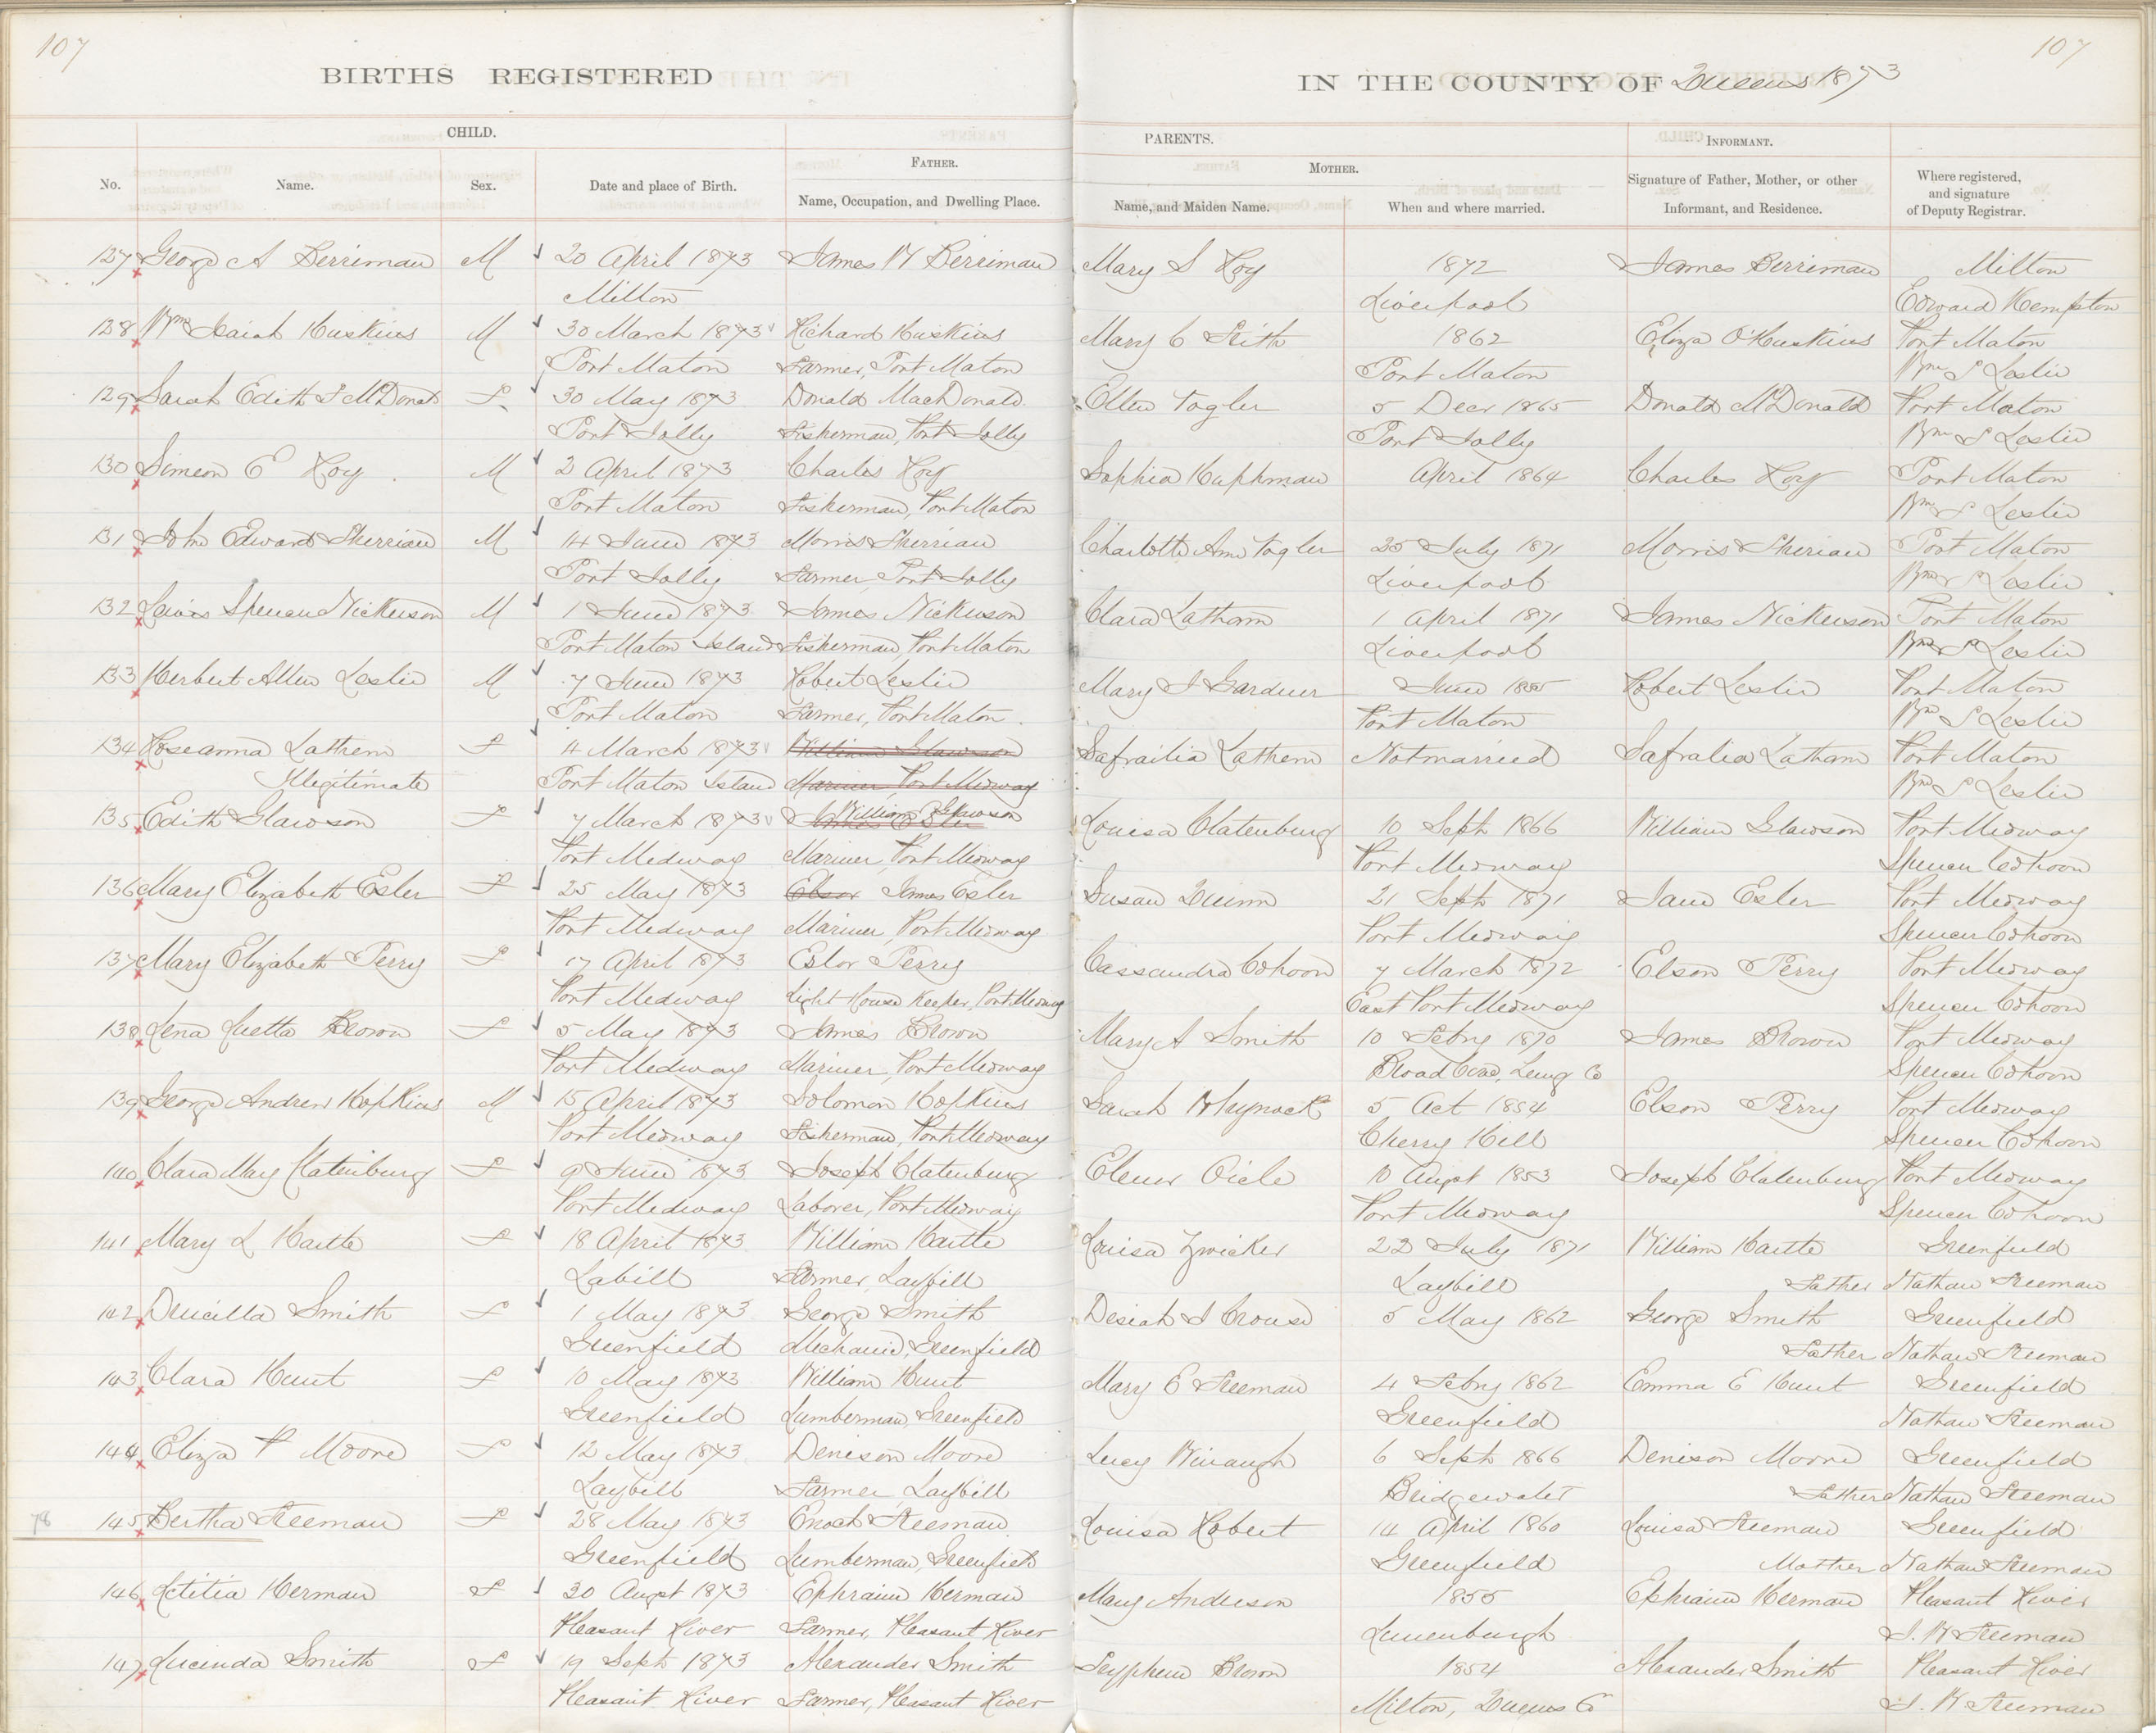 107
107
BIRTHS REGISTERED
IN THE COUNTY OF Queens 1873
CHILD.
PARENTS.
INFORMANT.
FATHER.
MOTHER.
No.
Name.
Sex.
Date and place of Birth.
Name, Occupation, and Dwelling Place.
Name, and Maiden Name.
When and where married.
Signature of Father, Mother, or other
Informant, and Residence.
Where registered,
and signature
of Deputy Registrar.
127 George A Berriman M 20 April 1873 James W Berriman Mary S Roy 1872 James Berriman Milton
Milton Liverpool Edward Kempton
128 Wm Isaiah Huskins M 30 March 1873 Richard Huskins Mary C Frith 1862 Eliza O Huskins Port Maton
Port Maton Farmer, Port Maton Port Maton Wm S Leslie
129 Sarah Edith F McDonald F 30 May 1873 Donald MacDonald Ellen Tagler 5 Decr 1865 Donald McDonald Port Maton
Port Jolly Fisherman, Port Jolly Port Jolly Wm S Leslie
130 Simeon E Roy M 2 April 1873 Charles Roy Sophia Huphman April 1864 Charles Roy Port Maton
Port Maton Fisherman, Port Maton Wm S Leslie
131 John Edward Sherrian M 14 June 1873 Morris Sherrian Charlotte Ann Tagler 25 July 1871 Morris Sherian Port Maton
Port Jolly Farmer Port Jolly Liverpool Wm S Leslie
132 Lewis Spencer Nickerson M 1 June 1873 James Nickerson Clara Latham 1 April 1871 James Nickerson Port Maton
Port Maton Island Fisherman, Port Maton Liverpool Wm S Leslie
133 Herbert Allen Leslie M 7 June 1873 Robert Leslie Mary J Gardner June 1855 Robert Leslie Port Maton
Port Maton Farmer, Port Maton Port Maton Wm S Leslie
134 Roseanna Lathem F 4 March 1873 William Glawson Safrailia Lathem Not married Safralia Latham Port Maton
Illegitimate Port Maton Island Mariner, Port Medway Wm S Leslie
135 Edith Glawson F 7 March 1873 William Glawson Louisa Clatenburg 10 Sept 1866 William Glawson Port Medway
Port Medway Mariner, Port Medway Port Medway Spencer Cohoon
136 Mary Elizabeth Esler F 25 May 1873 James Esler Susan Quinn 21 Sept 1871 Jane Esler Port Medway
Port Medway Mariner, Port Medway Port Medway Spencer Cohoon
137 Mary Elizabeth Perry F 17 April 1873 Eslor Perry Cassandra Cohoon 7 March 1872 Elson Perry Port Medway
Port Medway Light House Keeper, Port Medway East Port Medway Spencer Cohoon
138 Lena Luetta Brown F 5 May 1873 James Brown Mary A Smith 10 Febry 1870 James Brown Port Medway
Port Medway Mariner, Port Medway Broad Cove, Lung Co Spencer Cohoon
139 George Andrew Hopkins M 15 April 1873 Solomon Hopkins Sarah Whynock 5 Oct 1854 Elson Perry Port Medway
Port Medway Fisherman, Port Medway Cherry Hill Spencer Cohoon
140 Clara May Clatenburg F 9 June 1873 Joseph Clatenburg Elenor Oicle 10 Augst 1853 Joseph Clatenburg Port Medway
Port Medway Laborer, Port Medway Port Medway Spencer Cohoon
141 Mary L Hartte F 18 April 1873 William Hartte Louisa Zwicker 22 July 1871 William Hartte Greenfield
Labill Farmer, Laybill Laybill Father Nathan Freeman
142 Drucilla Smith F 1 May 1873 George Smith Desiah J Crouse 5 May 1862 George Smith Greenfield
Greenfield Mechanic, Greenfield Father Nathan Freeman
143 Clara Hunt F 10 May 1873 William Hunt Mary E Freeman 4 Febry 1862 Emma E Hunt Greenfield
Greenfield Lumberman, Greenfield Greenfield Nathan Freeman
144 Eliza P Moore F 12 May 1873 Denison Moore Lucy Winaugh 6 Sept 1866 Denison Moore Greenfield
Laybill Farmer, Laybill Bridgewater Father Nathan Freeman
78 145 Bertha Freeman F 28 May 1873 Enoch Freeman Louisa Robert 14 April 1860 Louisa Freeman Greenfield
Greenfield Lumberman, Greenfield Greenfield Mother Nathan Freeman
146 Letitia Herman F 30 Augst 1873 Ephraim Herman Mary Anderson 1855 Ephraim Herman Pleasant River
Pleasant River Farmer, Pleasant River Lunenburgh
147 Lucinda Smith F 19 Sept 1873 Alexander Smith Seyphem Brown 1854 Alexander Smith Pleasant River
Pleasant River Farmer, Pleasant River Milton, Queens Co